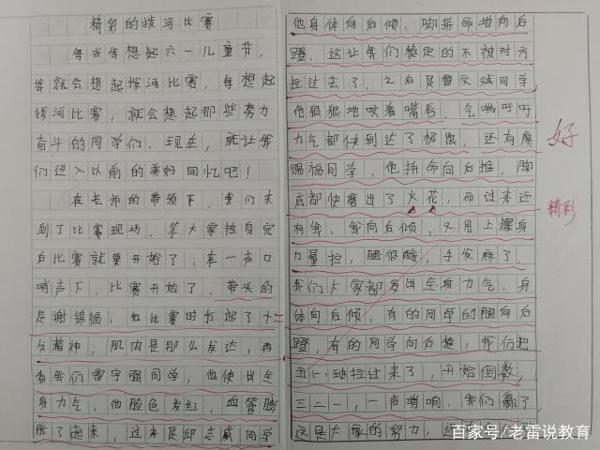 精彩的拔河比赛
每当我想起六一儿童节，
我就会想起拔河比赛，每想起
拔河比赛，就会想起那些努力
奋斗的同学们，现在，就让我
们进入以前的美好回忆吧！
在老师的带领下，我们来
到了比赛现场，等大家热身完
后比赛就要开始了，在一声口
哨声下，比赛开始了，带头的
是谢锦福，在比赛时打起了十二
分精神，肌肉是那么发达，再
看我们雷宇强同学，他使出全
身力气，他脸色发红，血管膨
胀了起来，过来是邱志威同学
他身体向后倾，脚拼命地向后
蹬，这让我们稳定的不被对方
拉过去了，之后是曹文斌同学
他狠狠地咬着嘴唇，气喘吁吁
力气都快到达了极限，还有
赐福同学，他拼命向后拉，脚
底都快磨出了火花，而过来还
有我，我向后倾，又用上浑身
力量拉，腿很酸，手发麻了，
我们大家都发出全身力气，身
体向后倾，有的同学的脚向后
蹬，有的同学向后拖，我们把
五(二)班拉过来了，开始倒数，
三二一，一声哨响，我们赢了
这是大家的努力，
好
精彩
百家号/老雷说教育